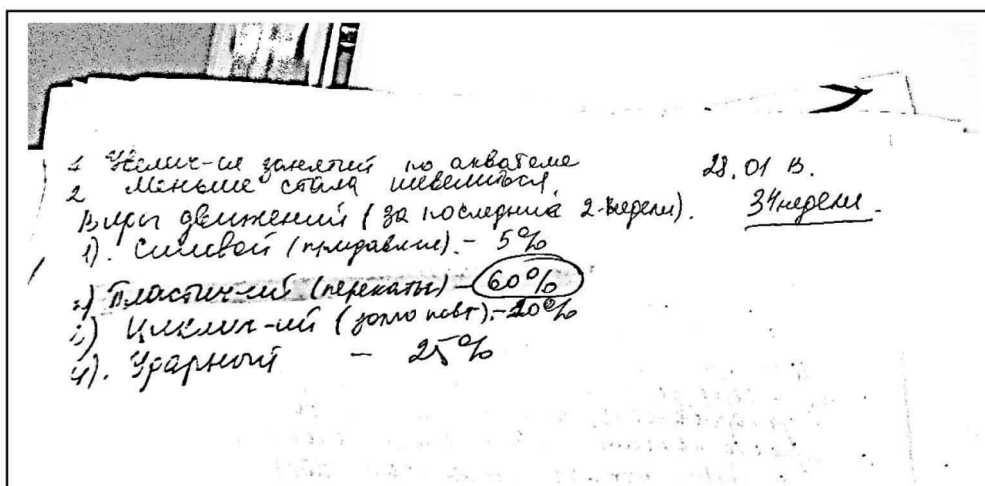 1 Увелич-ие занятий по акватеме
2 Меньше стала шевелиться.
28.01 В.
34 недели.
Виды движений (за последние 2-недели).
1). Силовой (придавлив). – 5%
2) Пластич-ий (перекаты) – 60%
3) Циклич-ий (долго повт). – 10%
4). Ударный – 25%